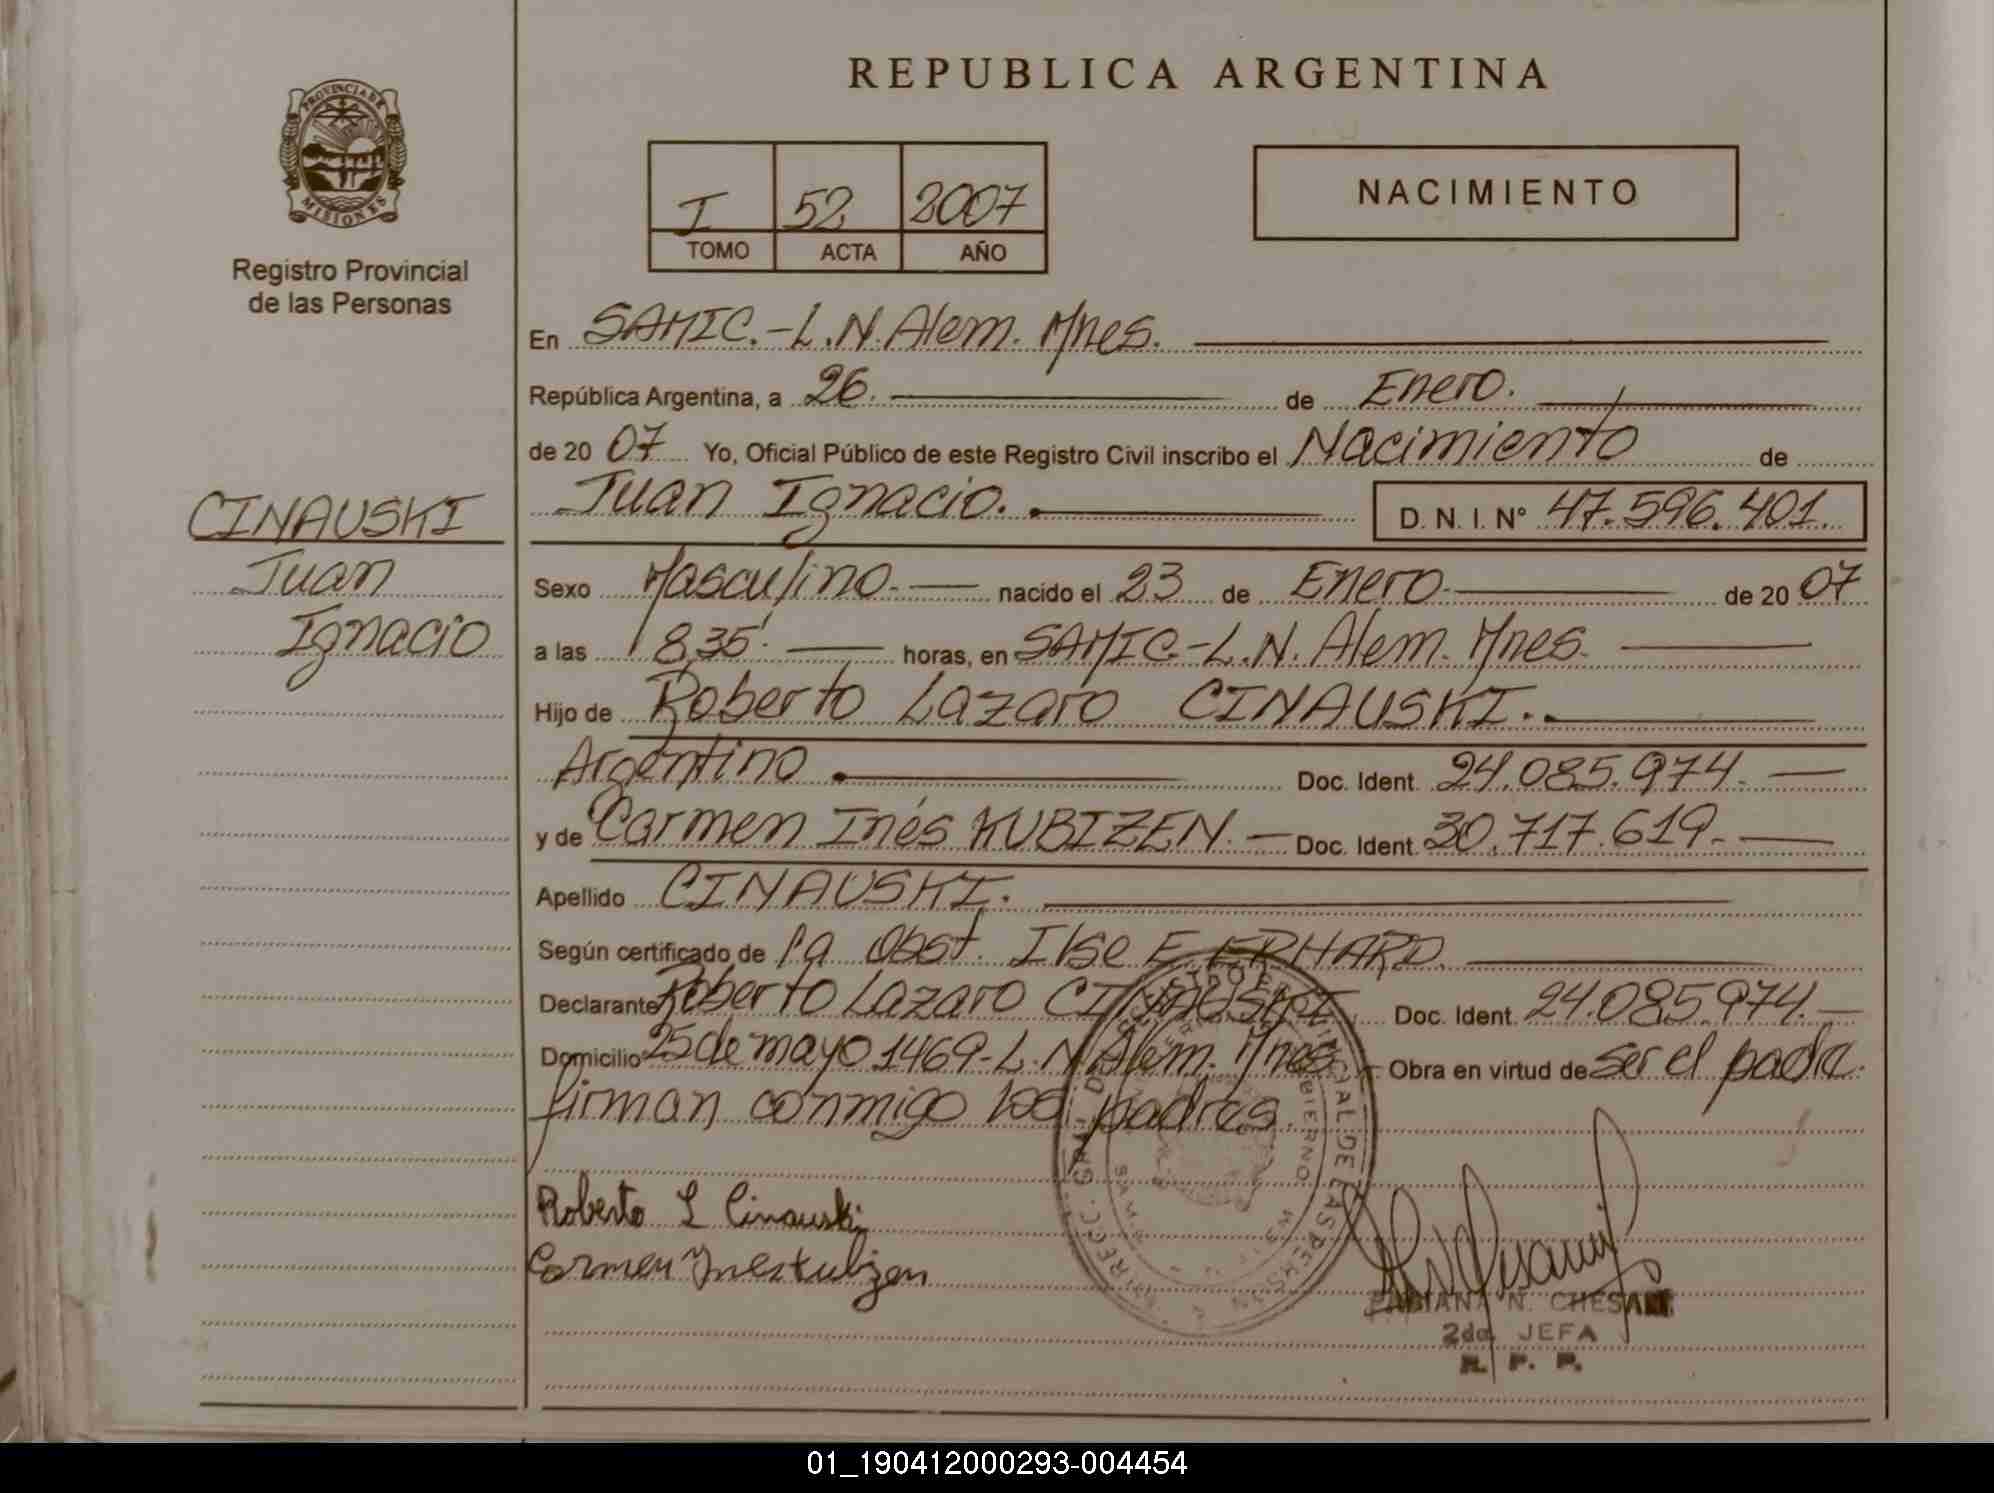 REPUBLICA ARGENTINA
PROVINCIA DE
MISIONES
Registro Provincial
de las Personas
I 52 2007
TOMO ACTA AÑO
NACIMIENTO
En SAMIC.-L.N.Alem. Mnes.
República Argentina, a 26. de Enero.
de 2007 Yo, Oficial Público de este Registro Civil inscribo el Nacimiento de
Juan Ignacio. D. N. I. N° 47.596.401.
CINAUSKI
Juan
Ignacio
Sexo Masculino.- nacido el 23 de Enero.- de 2007
a las 8,35'. horas, en SAMIC.-L.N. Alem. Mnes.
Hijo de Roberto Lazaro CINAUSKI.
Argentino Doc. Ident. 24.085.974.
y de Carmen Inés KUBIZEN. Doc. Ident. 30.717.619.
Apellido CINAUSKI.
Según certificado de la Obst. Ilse E. ERHARD.
Declarante Roberto Lazaro CINAUSKI Doc. Ident. 24.085.974.
Domicilio 25 de mayo 1469-L.N.Alem. Mnes. Obra en virtud de ser el padre.
firman conmigo los padres.
Roberto L Cinauski
Carmen Ines Kubizen
FABIANA N. CHESANI
2da. JEFA
R. P. P.
01_190412000293-004454